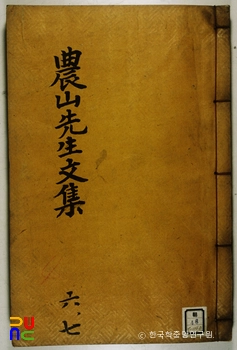 農山先生文集
六、七
© 한국학중앙연구원